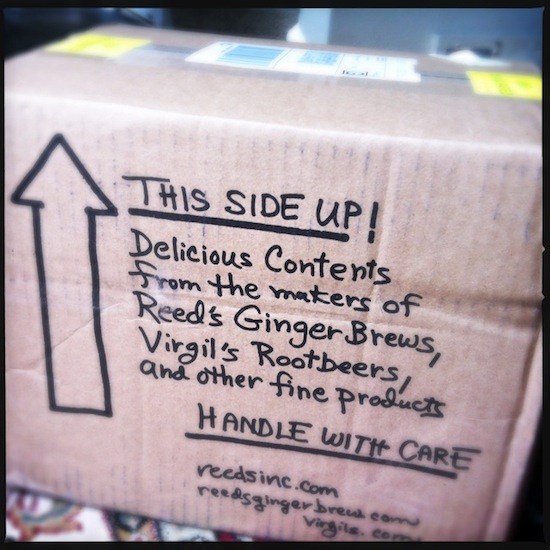 THIS SIDE UP!
Delicious Contents
from the makers of
Reed's Ginger Brews,
Virgil's Rootbeers,
and other fine products
HANDLE WITH CARE
reedsinc.com
reedsgingerbrew.com
Virgils.com